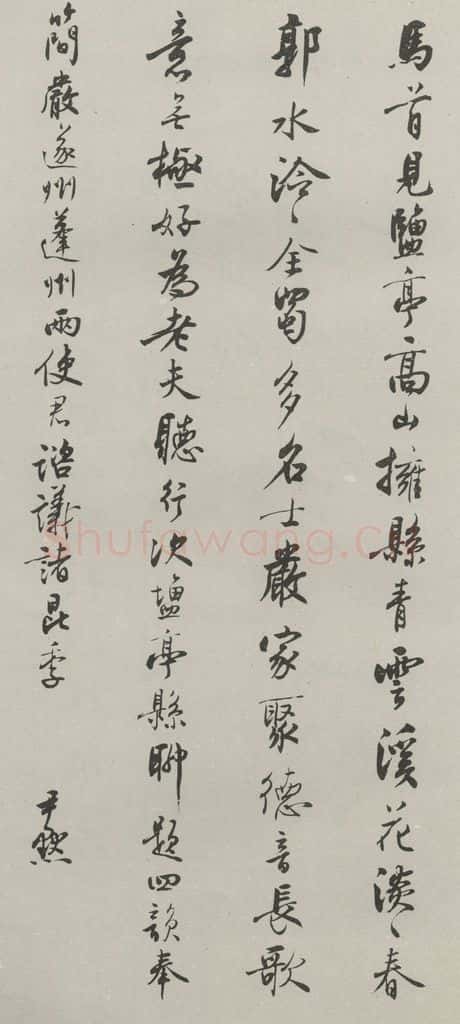 馬首見鹽亭高山擁縣青雲溪花淡〻春
郭水泠〻全蜀多名士嚴家聚德音長歌
意無極好為老夫聽行次鹽亭縣聊題四韻奉
簡嚴遂州蓬州兩使君諮議諸昆季
尹默
shufawang.c